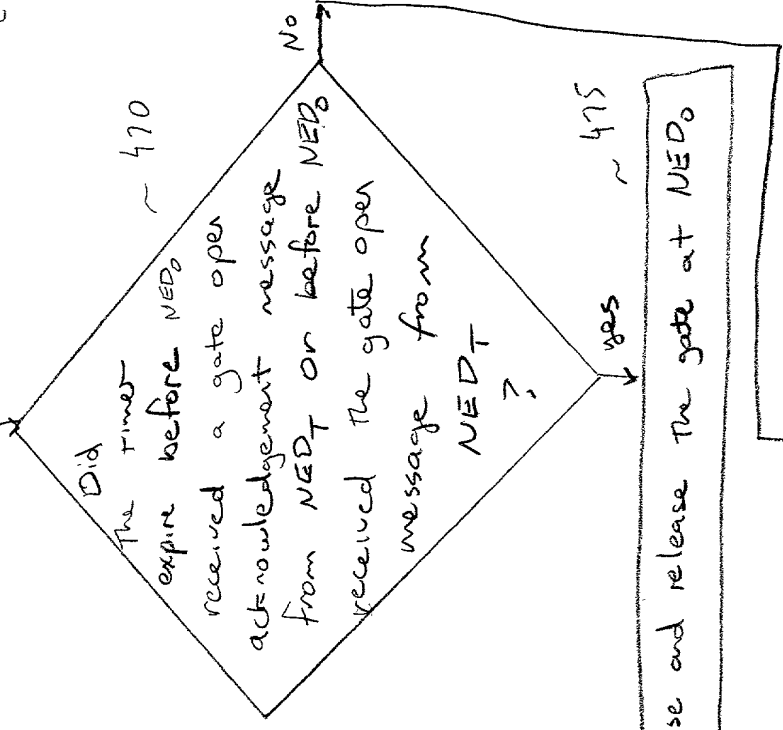 No
~ 470
Did
The timer
expire before NED₀
received a gate open
acknowledgement message
from NED_T or before NED₀
received the gate open
message from
NED_T
?
yes
~ 475
se and release the gate at NED₀